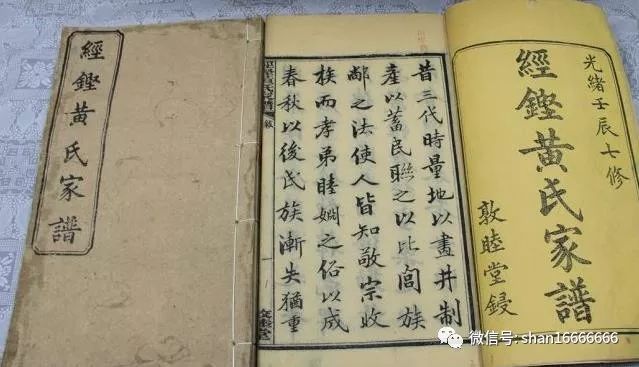 經鏗黃氏家譜
昔三代時量地以畫井制
產以蓄民聯之以比閭族
之法使人皆知敬宗收
族而孝弟睦婣之俗以成
春秋以後氏族漸失猶重
光緒壬辰七修
經鏗黃氏家譜
敦睦堂鋟
微信号: shan16666666